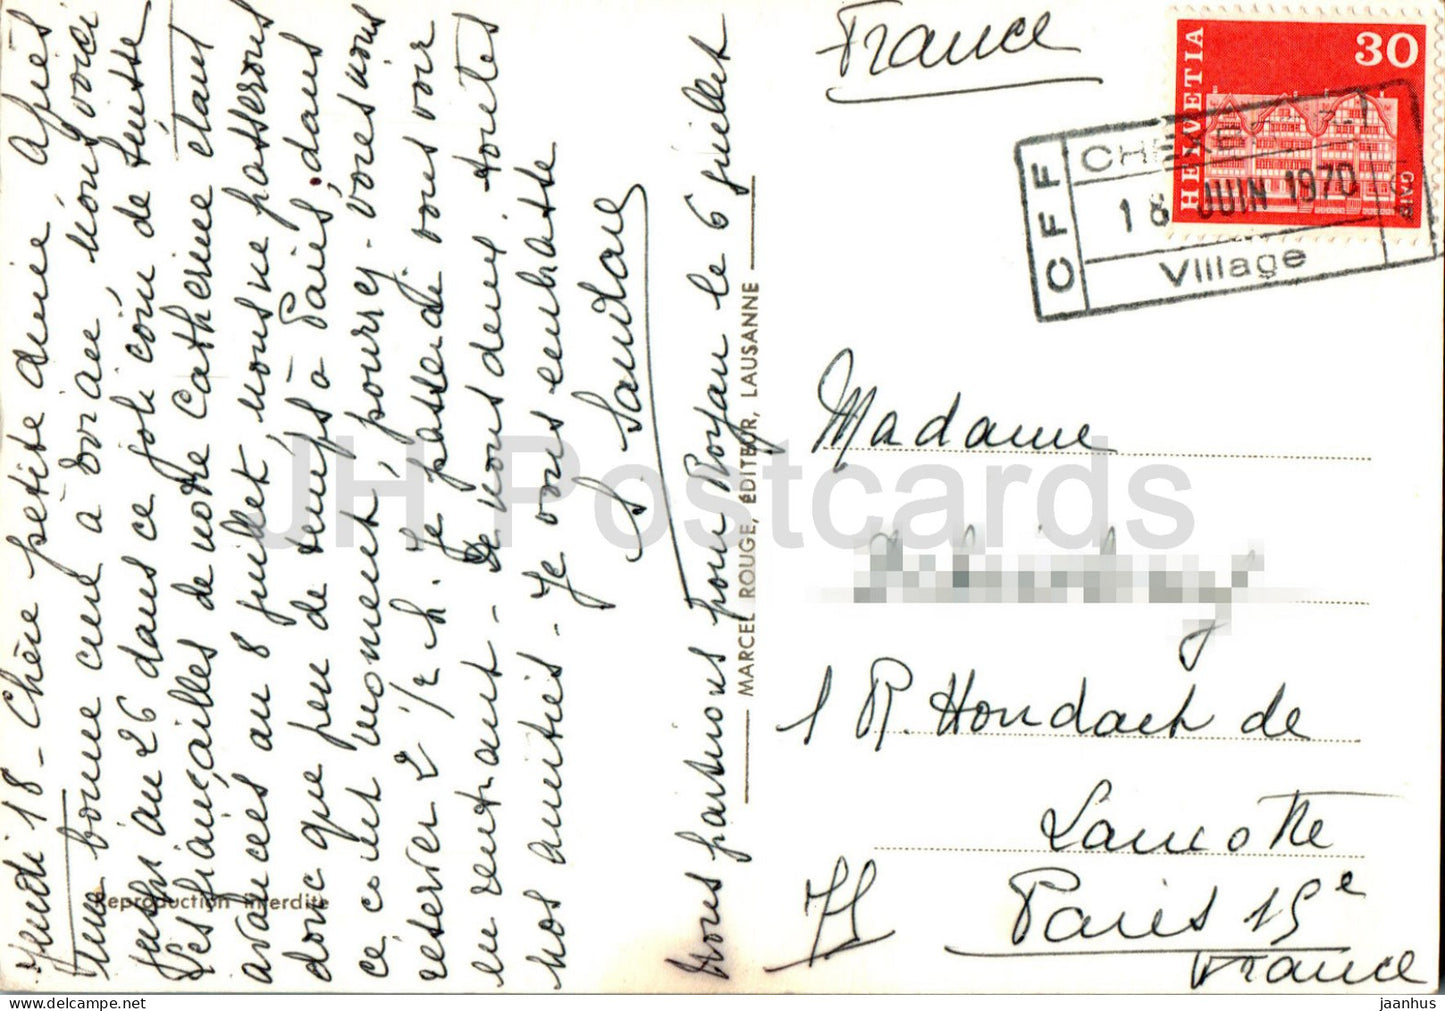 Jeudi 18 - Chère petite amie, Après
une bonne cure à Evian, nous voici
jusqu'au 26 dans ce joli coin de Suisse
Les fiançailles de notre Catherine étant
avancées au 8 juillet, nous ne passerons
donc que peu de temps à Paris, dans
ce court moment, pourrez-vous nous
réserver 2 1/2 h. Je passerai vous voir
en rentrant - De nous deux toutes
nos amitiés - Je vous embrasse
Nous partirons pour Royan le 6 juillet
Reproduction interdite
MARCEL ROUGE, ÉDITEUR, LAUSANNE
France
HELVETIA
30
GAIS
CFF
18 JUIN 1970
Village
Madame
1 R. Houdart de
Lamotte
Paris 15e
75
France
JH Postcards
jaanhus